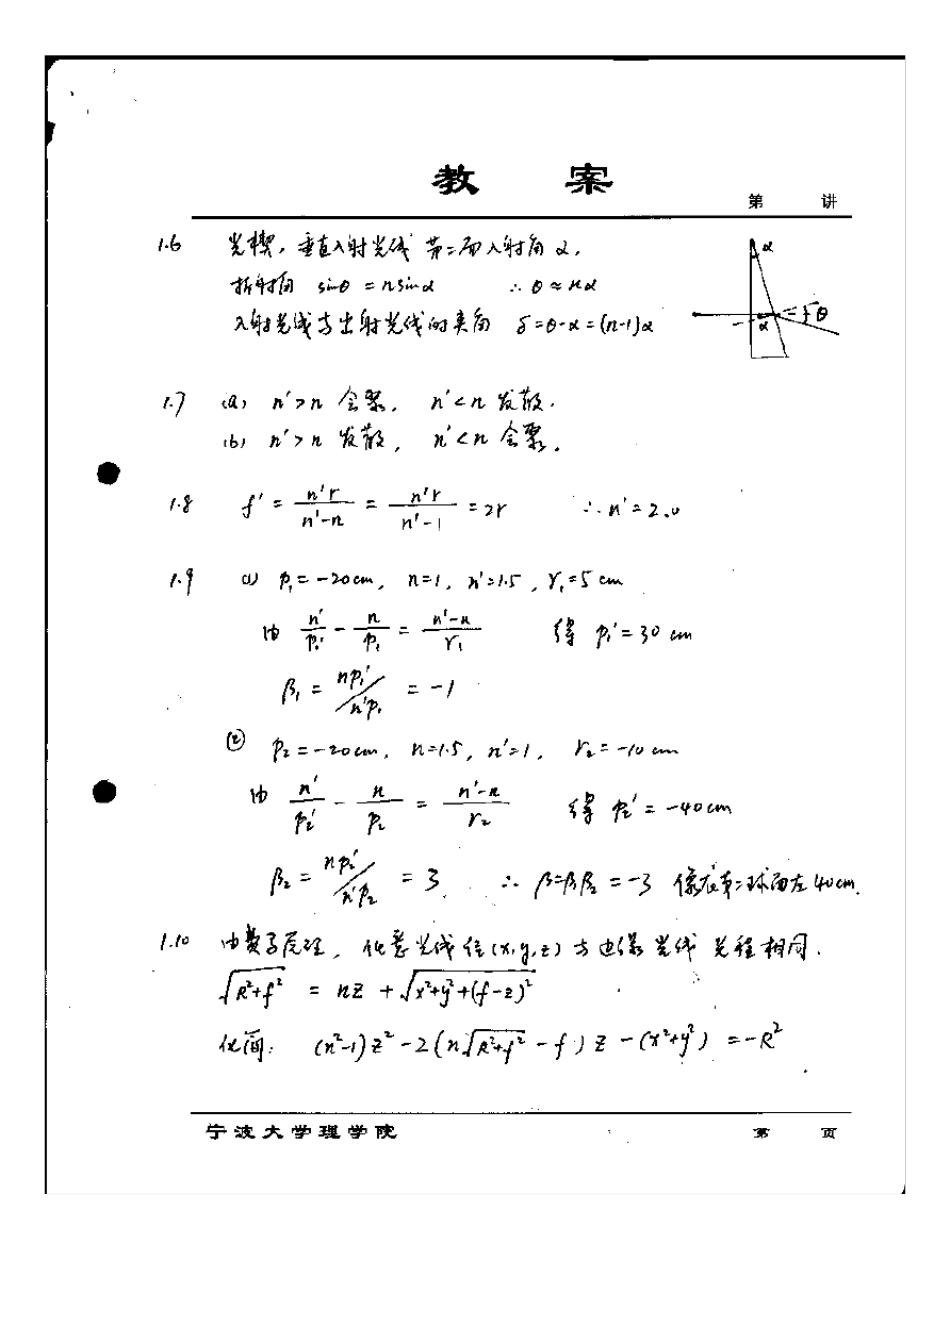 教 案
第 讲
1.6 光楔，垂直入射光线 第二面入射角 α，
折射角 sinθ = n sinα ∴ θ ≈ nα
入射光线与出射光线的夹角 δ = θ-α = (n-1)α
α
α
δ θ
1.7 (a) n'>n 会聚， n'<n 发散.
(b) n'>n 发散， n'<n 会聚.
1.8 f' = n'r/(n'-n) = n'r/(n'-1) = 2r ∴ n' = 2.0
1.9 (1) p₁ = -20cm, n=1, n'=1.5, r₁=5cm
由 n'/p₁' - n/p₁ = (n'-n)/r₁ 得 p₁' = 30 cm
β₁ = np₁'/n'p₁ = -1
② p₂ = -20cm, n=1.5, n'=1, r₂ = -10cm
由 n'/p₂' - n/p₂ = (n'-n)/r₂ 得 p₂' = -40cm
β₂ = np₂'/n'p₂ = 3 ∴ β=β₁β₂ = -3 像在第二球面左40cm.
1.10 由费马原理， 任意光线经(x,y,z)与边缘光线 光程相同.
√(R²+f²) = nz + √(x²+y²+(f-z)²)
化简: (n²-1)z² - 2(n√(R²+f²) - f)z - (x²+y²) = -R²
宁波大学理学院
第 页